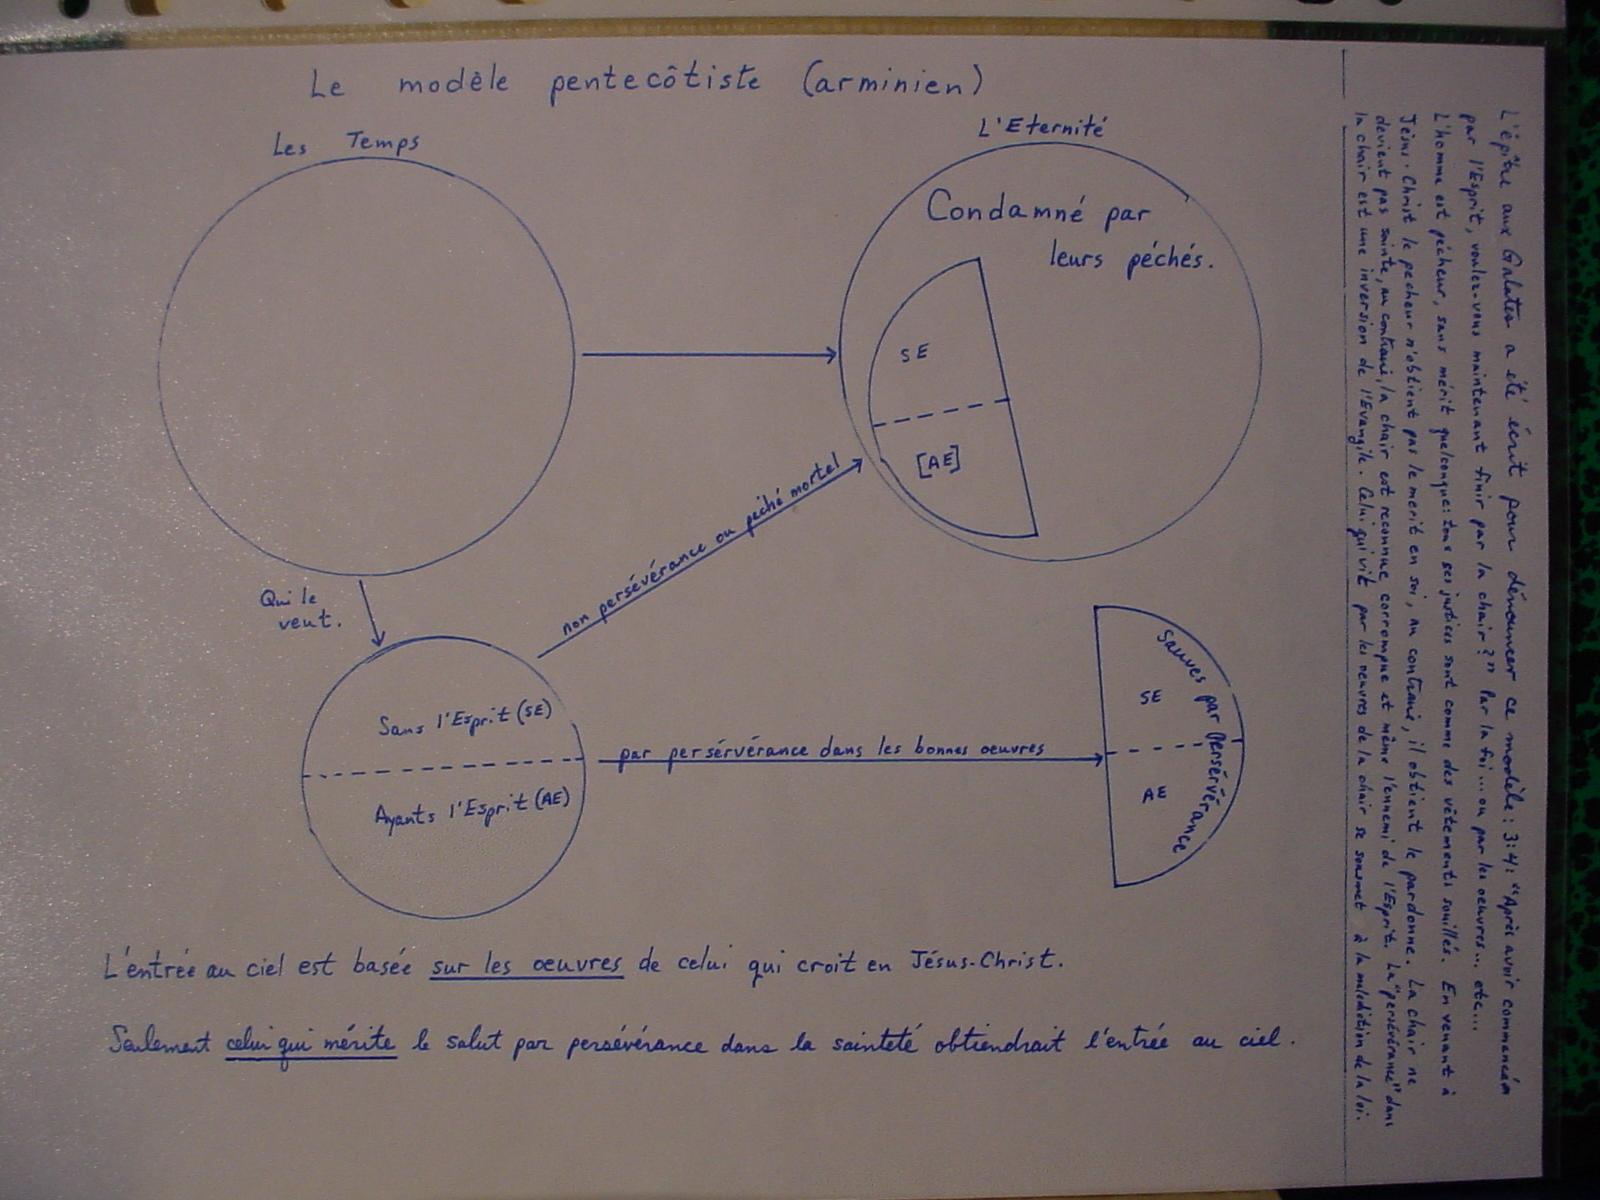 Le modèle pentecôtiste (arminien)
Les Temps
L'Eternité
Condamné par
leurs péchés.
SE
[AE]
non persévérance ou péché mortel
Qui le
veut.
Sans l'Esprit (SE)
Ayants l'Esprit (AE)
par persérvérance dans les bonnes oeuvres
Sauvés par persérvérance
SE
AE
L'entrée au ciel est basée sur les oeuvres de celui qui croit en Jésus-Christ.
Seulement celui qui mérite le salut par persévérance dans la sainteté obtiendrait l'entrée au ciel.
L'épître aux Galates a été écrit pour dénoncer ce modèle: 3:4: "Après avoir commencé
par l'Esprit, voulez-vous maintenant finir par la chair?" Par la foi... ou par les oeuvres... etc...
L'homme est pécheur, sans mérit quelconque: tous ses justices sont comme des vêtements souillés. En venant à
Jésus-Christ le pecheur n'obtient pas le merit en soi, au contraire, il obtient le pardonne. La chair ne
devient pas sainte, au contraire, la chair est reconnue corrompue et même l'ennemi de l'Esprit. La "persévérance" dans
la chair est une inversion de l'Evangile. Celui qui vit par les oeuvres de la chair se soumet à la malédiction de la loi.